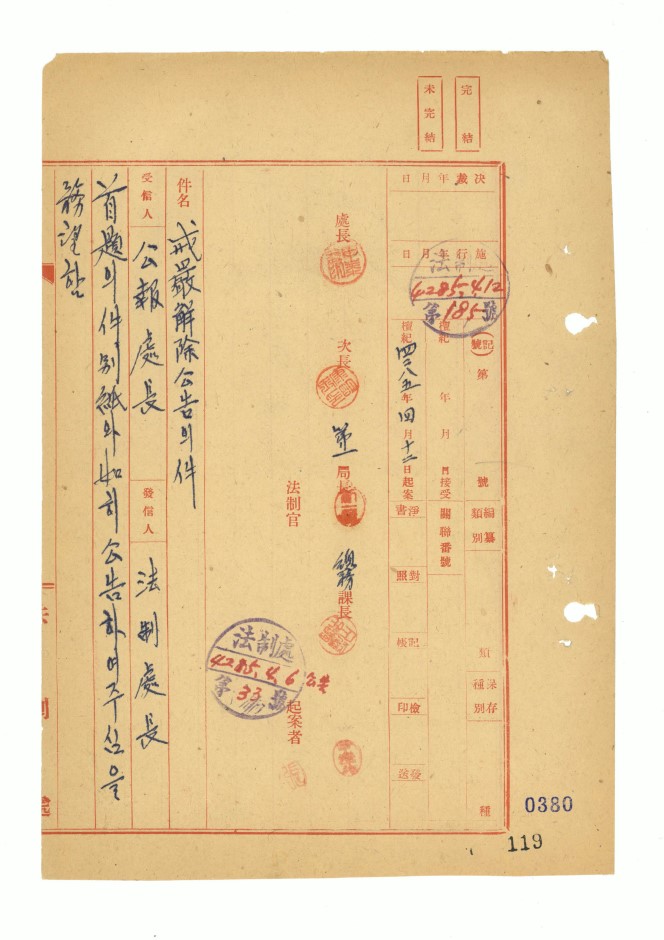 完結
未完結
決裁年月日
施行年月日
記號 第 號
編纂類別 類
保存種別 種
檀紀 年 月 日接受
關聯番號
檀紀四二八五年四月十二日起案
淨書
對照
記帳
檢印
發送
法制處
4285.4.12
第185號
處長
次長
第一局長
總務課長
法制官
起案者
法制處
4285.4.6
第33號
公告
件名 戒嚴解除公告의件
受信人 公報處長
發信人 法制處長
首題의件別紙와如히公告하여주심을
務望함
0380
119